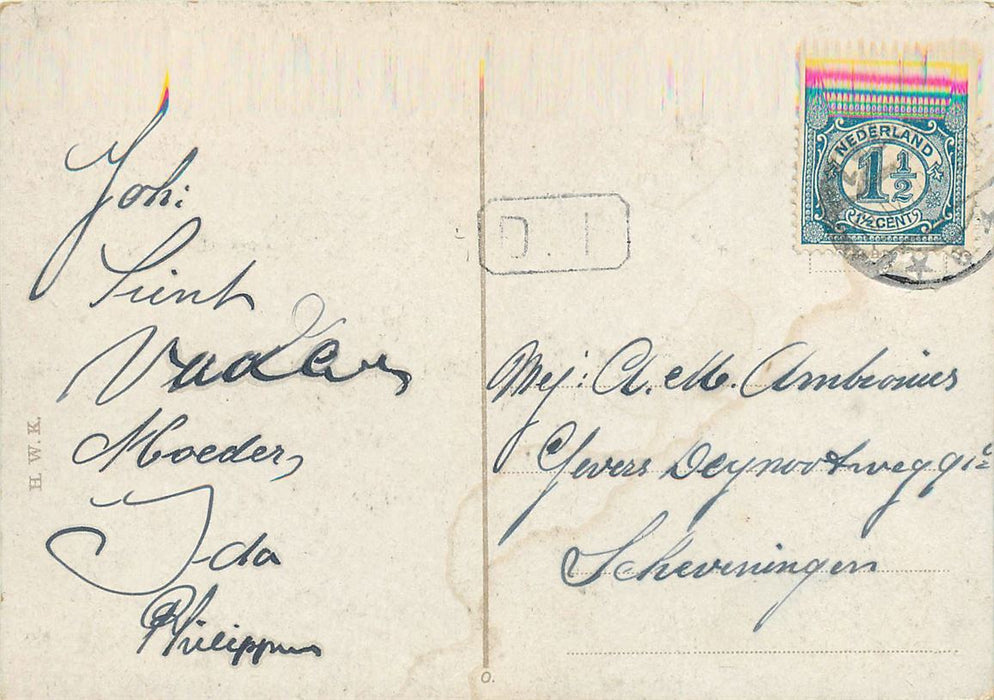 Joh:
Sient
Vader,
Moeder,
Ida
Philippus
H. W. K.
D. I
NEDERLAND
1 1/2
1½ CENT
Mej: A. M. Ambrosius
Gevers Deynootweg 91c
Scheveningen
O.